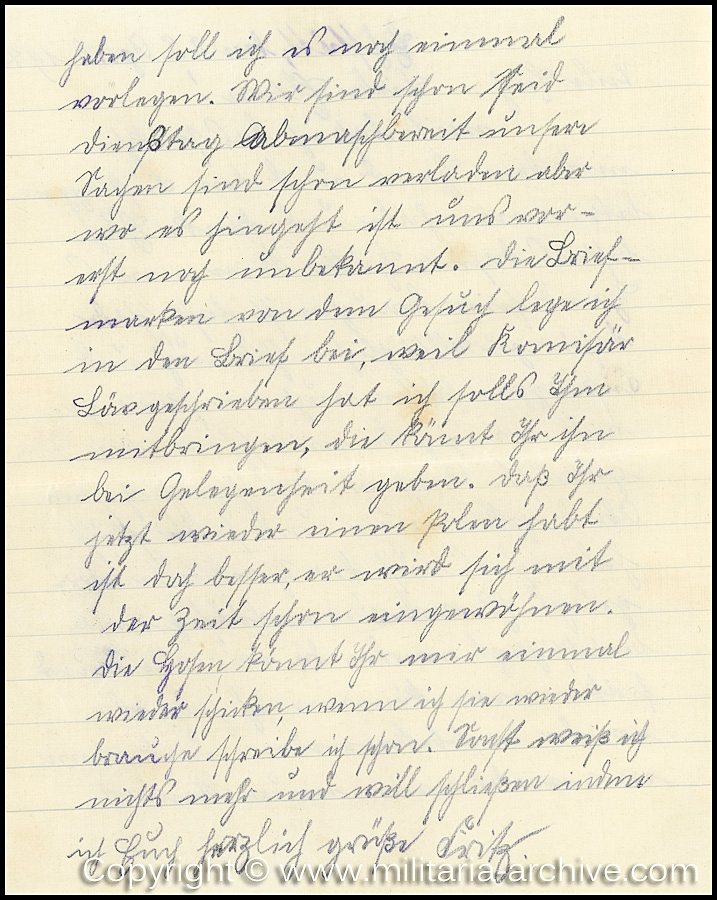 haben soll ich es noch einmal
vorlegen. Wir sind schon Seid
Dienstag Abmaschbereit unsere
Sachen sind schon verladen aber
wo es hingeht ist uns vor-
erst noch unbekannt. Die Brief-
marken von dem Gesuch lege ich
in den Brief bei, weil Komisär
geschrieben hat ich solls Ihm
mitbringen, die könnt Ihr ihn
bei Gelegenheit geben. Daß Ihr
jetzt wieder einen Polen habt
ist doch besser, er wird sich mit
der Zeit schon eingewöhnen.
Die Hosen könnt Ihr mir einmal
wieder schicken, wenn ich sie wieder
brauche schreibe ich schon. Sonst weiß ich
nichts mehr und will schließen indem
ich Euch herzlich grüße Fritz.
Copyright © www.militaria-archive.com